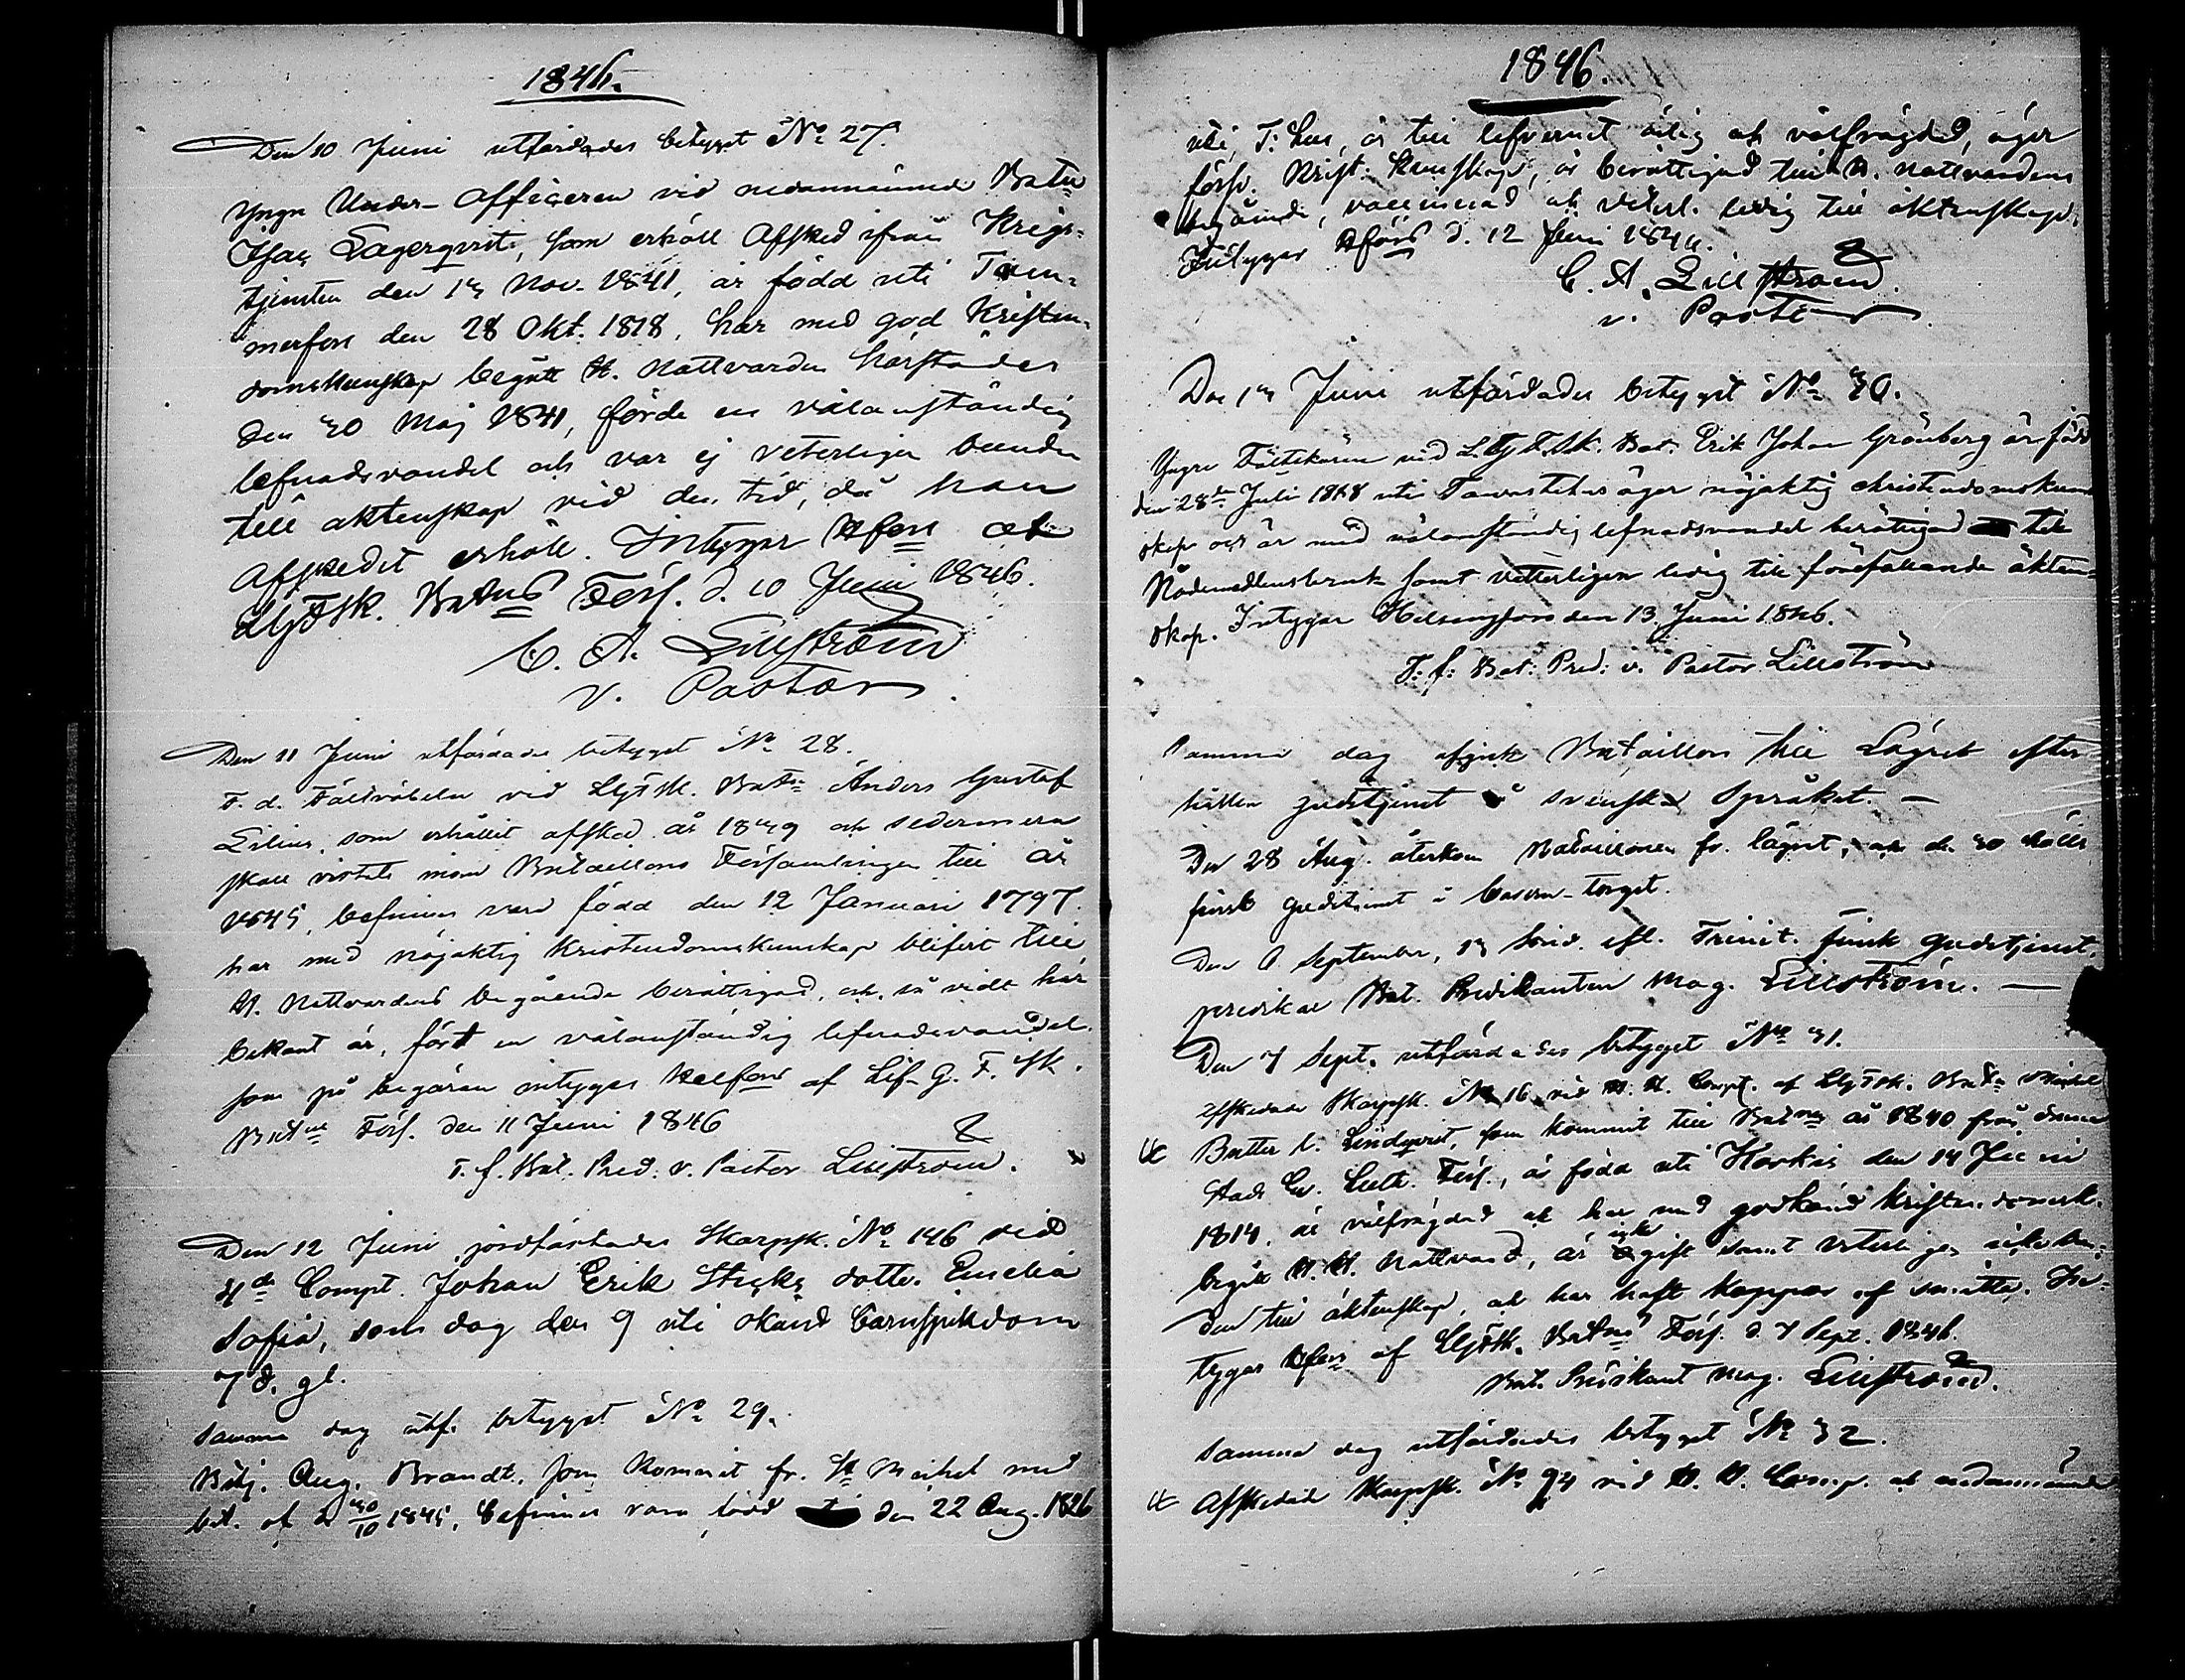 1846.
Den 10 Juni utfärdades betyget No 27.
Yngre Under-Officeren vid nedannämnde Batn
Isac Lagerqvist, som erhöll Afsked ifrån Krigs-
tjensten den 13 Nov. 1841, är född uti Tam-
merfors den 28 Okt. 1818, har med god Kristen-
domskunskap begått H. Nattvarden härstädes
den 30 Maj 1841, förde en välanständig
lefnadsvandel och var ej veterligen bunden
till äktenskap vid den tid, då han
Afskedet erhöll. Intygar Hfors af
LGFSk. Batns Förs. d. 10 Juni 1846.
C. A. Lillström
v. Pastor.
Den 11 Juni utfärdades betyget No 28.
F. d. Fältväbeln vid LGFSk. Batn Anders Gustaf
Lilius, som erhållit afsked år 1839 och sedermera
skall vistats inom Bataillons Församlingen till år
1845, befinnes vara född den 12 Januari 1797.
har med nöjaktig Kristendomskunskap blifvit till
H. Nattvardens begående berättigad, och, så vidt här
bekant är, fört en välanständig lefnadsvandel.
som på begäran intygas Helsfors af Lif-G. F. Sk.
Batns Förs. den 11 Juni 1846
T. f. Bat. Pred. v. Pastor Lillström.
Den 12 Juni jordfästades Skarpsk. No 146 vid
4de Compt. Johan Erik Sticks dotter Emelia
Sofia, som dog den 9 uti okänd barnsjukdom
7 d. gl.
Samma dag utf. betyget No 29.
Aug. Brandt, som kommit fr. St Michel med
bet. af d 30/10 1845, befinnes vara född den 22 Aug. 1826
1846.
uti T:hus, är till lefvernet ärlig och välfrägdad, äger
förv. Krist. Kunskap, är berättigad till H. Nattvardens
begående, vaccinerad och veterl. ledig till äktenskap.
Intygar Hfors d. 12 Juni 1846.
C. A. Lillström.
v. Pastor
Den 13 Juni utfärdades betyget No 30.
Yngre Fältskären vid L.G.F.Sk. Bat. Erik Johan Grönberg är född
den 28de Juli 1818 uti Tavastehus äger nöjaktig christendomskun
skap och är med välanständig lefnadsvandel berättigad till
Nådemedlens bruk samt vetterligen ledig till förefallande äkten-
skap. Intygar Helsingfors den 13 Juni 1846.
T. f. Bat. Pred. v. Pastor Lillström
Samma dag afgick Bataillon till Lägret efter
hållen gudstjenst å svenska Språket. —
Den 28 Aug. återkom Bataillonen fr. lägret, och d. 30 hölls
finsk gudstjenst å Casern-torget.
Den 6 September, 13 Sönd. eft. Trinit. finsk gudstjenst.
predikar Bat. Predikanten Mag. Lillström. —
Den 7 Sept. utfärdades betyget No 31.
Afskedade Skarpsk. No 16 vid H. H. Compt. af LGFSk. Batn Michel
Lindqvist, som kommit till Batn år 1840 från denna
Stads Ev. Luth. Förs., är född uti Korkis den 14 Juni
1814, är välfrägdad och har med godkänd Kristendomsk.
begått H. H. Nattvard, är icke gift samt veterligen icke bun-
den till äktenskap, och har haft koppor af smitta. In-
tygas Hfors af LGFSk. Batns Förs. d. 7 Sept. 1846.
Bat. Predikant Mag. Lillström.
Samma dag utfärdades betyget No 32.
Afskedade Skarpsk. No 94 vid H. H. Comp. af nedannämnde